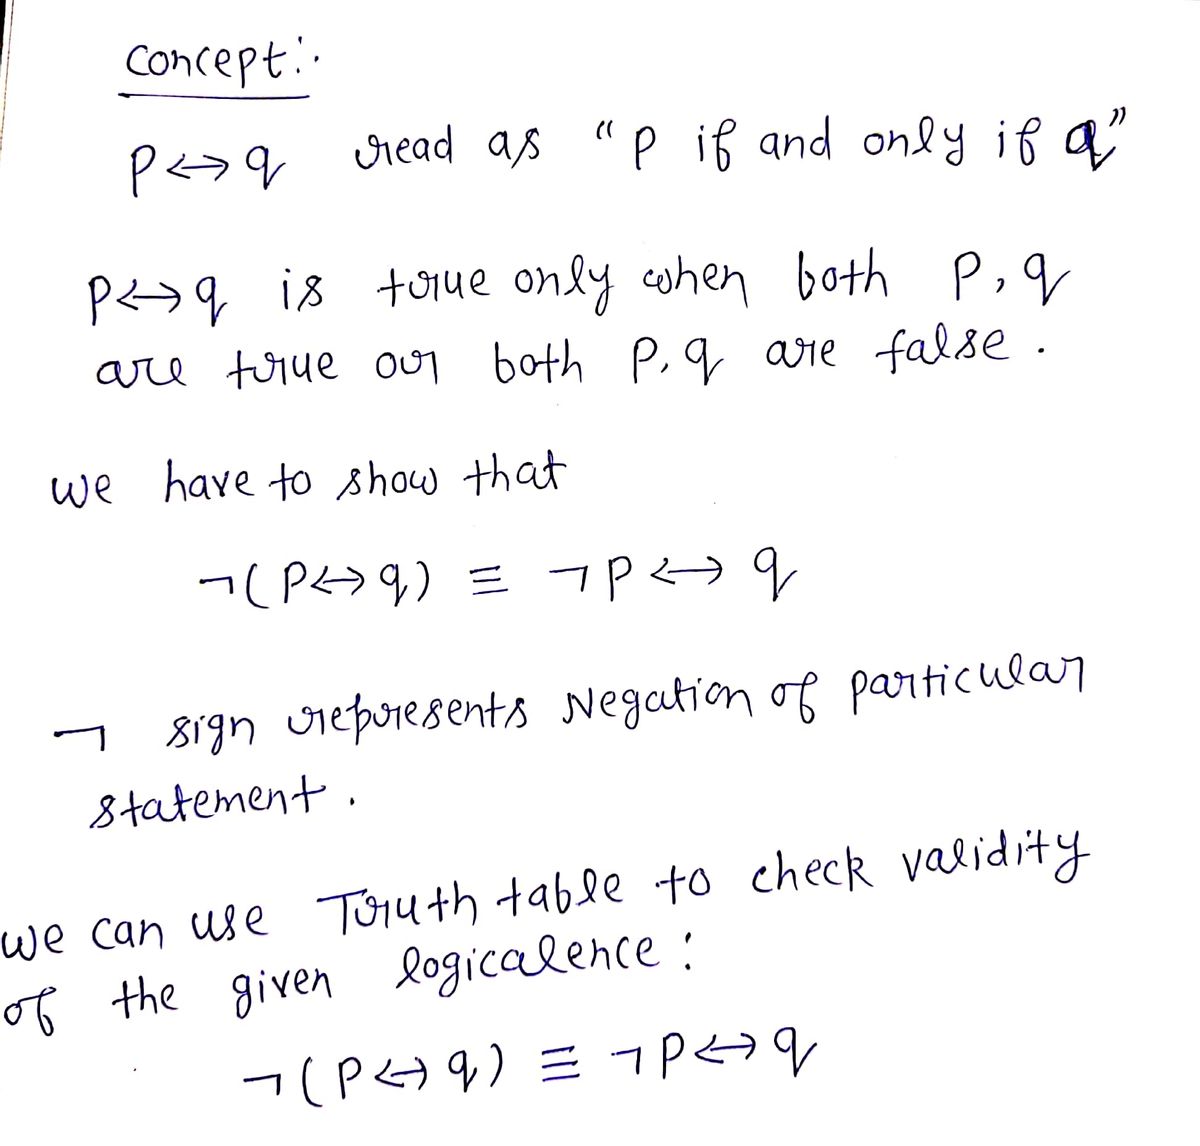 Concept:-
P↔q read as "P if and only if q"
P↔q is true only when both P, q
are true or both P, q are false.
we have to show that
¬(P↔q) ≡ ¬P↔q
¬ sign represents Negation of particular
statement.
we can use Truth table to check validity
of the given logicalence :
¬(P↔q) ≡ ¬P↔q